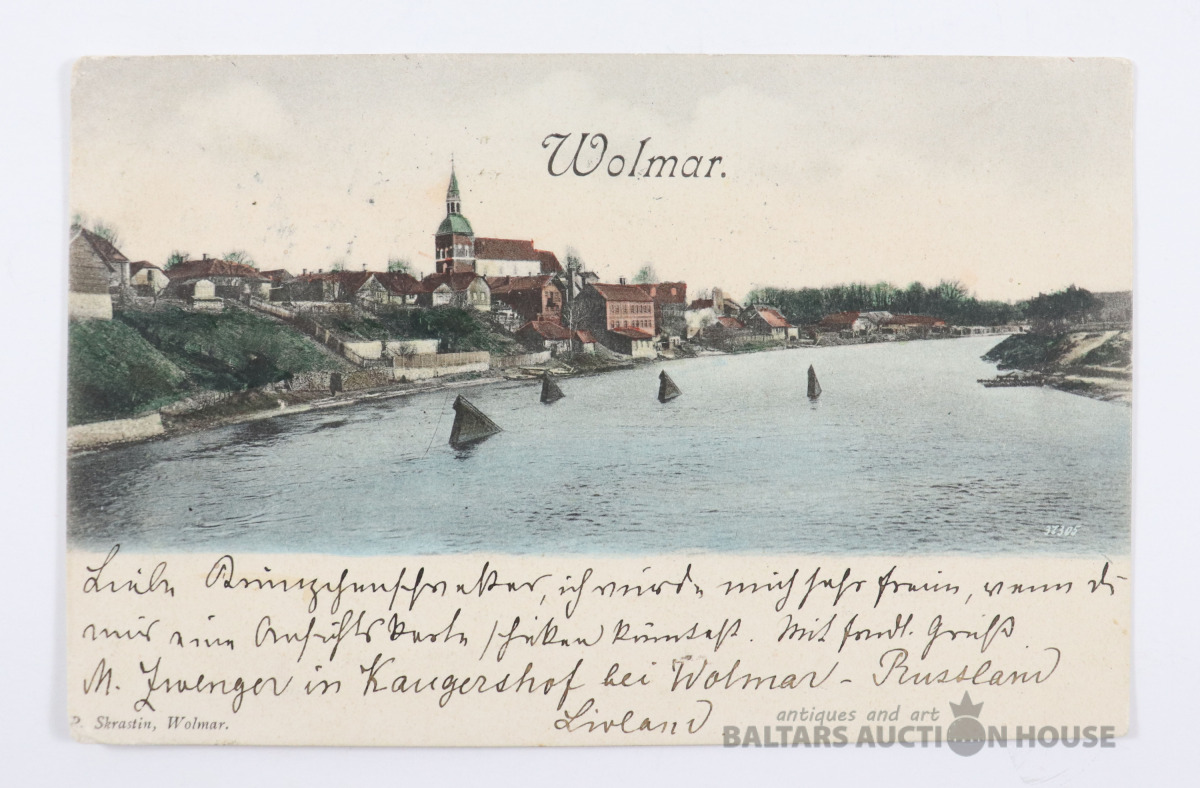 Wolmar.
37305
Liebe Kränzchenschwester, ich würde mich sehr freuen, wenn du
mir eine Ansichtskarte schicken könntest. Mit frndl. Gruß
M. Zwenger in Kaugershof bei Wolmar - Russland
Livland
P. Skrastin, Wolmar.
antiques and art
BALTARS AUCTION HOUSE